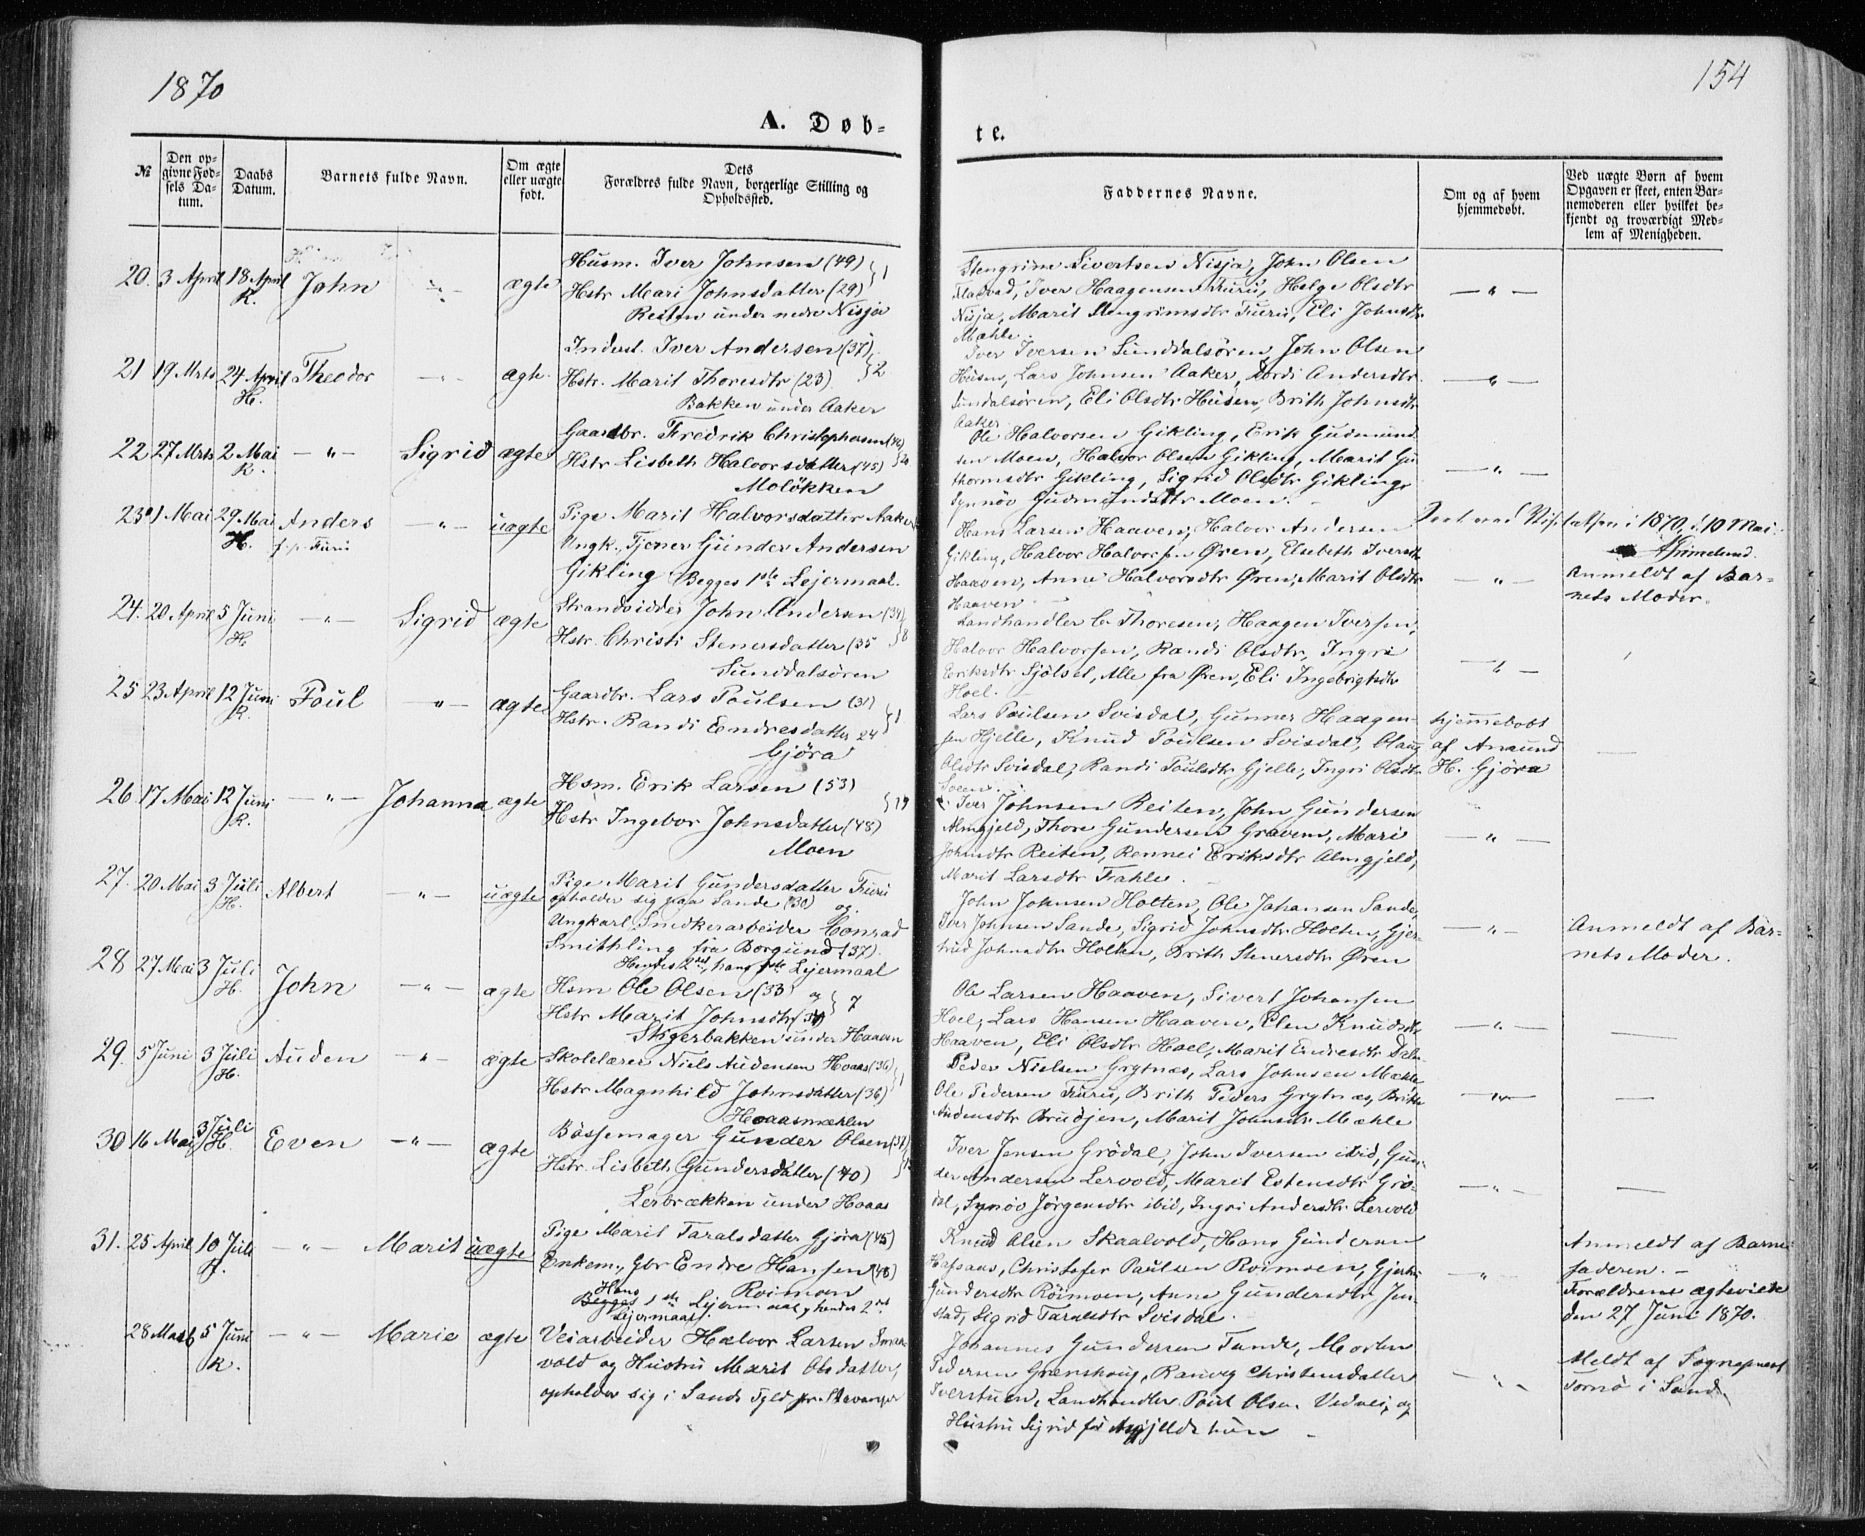 1870
154
A. Døb-
te.
№
Den opgivne Fødsels Datum.
Daabs Datum.
Barnets fulde Navn.
Om ægte eller uægte født.
Dets Forældres fulde Navn, borgerlige Stilling og Opholdssted.
Faddernes Navne.
Om og af hvem hjemmedøbt.
Ved uægte Børn af hvem Opgaven er skeet, enten Barnemoderen eller hvilket bekjendt og troværdigt Medlem af Menigheden.
20. 3 April 18 April K. John -"- ægte
Husm. Iver Johnsen (49) } 1
Hstr Mari Johnsdatter (29)
Resten under nedre Nisja
Stengrim Sivertsen Nisja, John Olsen
Flatvad, Iver Haagensen Furu, Helge Olsdtr
Nisja, Marit Stengrimsdtr Furu, Eli Johnsdtr
Mæhle.
-"-
21 19 Mrts 24 April H. Theodor -"- ægte.
Inderst. Iver Andersen (37) } 2
Hstr. Marit Thoresdtr (23)
Bakken under Aaker
Iver Iversen Sunddalsören, John Olsen
Husen, Lars Johnsen Aaker, Andersdtr
Sundalsören, Eli Olsdtr Husen, Brith Johnsdtr
Aaker
-"-
22 27 Mrts 2 Mai K. -"- Sigrid ægte
Gaardbr. Fredrik Christophersen
Hstr Lisbeth Halvorsdatter (45)
Moløkken
Ole Halvorsen Gikling, Erik Gudmund
sen Moen, Halvor Olsen Gikling, Marit Gu
thormsdtr Gikling, Sigrid Olsdtr Gikling
Synnöv Gudmundsdtr Moen.
-"-
23 1 Mai 29 Mai H. Anders f. p. Furu -"- uægte
Pige Marit Halvorsdatter Aaker
Ungk. Tjener Gunder Andersen
Gikling Begges 1ste Lejermaal.
Hans Larsen Haaven, Halvor Andersen
Gikling, Halvor Halvorsen Øren, Elsebeth Iversdtr
Haaven, Anne Halvorsdtr Øren, Marit Olsdtr
Haaven
i 1870 10 Mai.
-"-
Anmeldt af Bar-
nets Moder.
24. 20 April 5 Juni H. -"- Sigrid ægte
Strandsidder John Andersen (34) } 8
Hstr. Christi Stenersdatter (35
Sunddalsören
Landhandler Thoresen, Haagen Iversen,
Halvor Halvorsen, Randi Olsdtr, Ingri
Eriksdtr Sjölset, Alle fra Øren, Eli Ingebrigtsdtr
Hoel.
-"-
25 23 April 12 Juni K. Poul -"- ægte
Gaardbr. Lars Poulsen (31) } 1
Hstr. Randi Endresdatter 24
Gjøra
Lars Poulsen Svisdal, Gunner Haagen-
sen Hjelle, Knud Poulsen Svisdal, Olau
Olsdtr Svisdal, Randi Poulsdtr Gjelle, Ingri Olsdtr
hjemmedøbt
af Amund
H. Gjöra
26. 17 Mai 12 Juni K. -"- Johanna ægte
Hsm. Erik Larsen (53)
Hstr Ingebor Johnsdatter (48)
Moen
Iver Johnsen Reiten, John Gundersen
Almgjeld, Thore Gundersen Gravem, Mari
Johnsdtr Reiten, Rennei Eriksdtr Almgjeld,
Marit Larsdtr Fahle.
-"-
27. 20 Mai 3 Juli H. Albert -"- uægte
Pige Marit Gundersdatter Furu
opholder sig paa Sande (30) og
Ungkarl Smedkerarbeider Conrad
Smithling fra Borgund (37)
Hendes 2det, hans 1ste Lejermaal
John Johnsen Holten, Ole Johansen Sande,
Iver Johnsen Sande, Sigrid Johnsdtr Holten, Gjer-
trud Johnsdtr Holten, Brith Stenersdtr Øren
-"-
Anmeldt af Bar-
nets Moder.
28 27 Mai 3 Juli H. John -"- ægte
Hsm Ole Olsen (33 og } 7
Hstr Marit Johnsdtr
Stigerbakken under Haaven
Ole Larsen Haaven, Sivert Johansen
Hoel, Lars Hansen Haaven, Elen Knudsdtr
Haaven, Eli Olsdtr Hoel, Marit Endresdtr
-"-
29. 5 Juni 3 Juli H. Auden -"- ægte
Skolelærer Niels Audensen Hoaas (36) } 1
Hstr Magnhild Johnsdatter (36)
Hoaasmæhlen
Peder Nielsen Grytnæs, Lars Johnsen Mæhle
Ole Pedersen Furu, Brith Peders Grytnæs, Brith
Audensdtr, Marit Johnsdtr Mæhle
-"-
30 16 Mai 3 Juli H. Even -"- ægte
Bössemager Gunder Olsen
Hstr. Lisbeth Gundersdatter (40)
Lerbrækken under Hoaas
Iver Jensen Grödal, John Iversen ibid, Gun-
der Andersen Lervold, Marit Estensdtr Grö-
dal, Synöv Jörgensdtr ibid, Ingri Andersdtr Lervold
-"-
31. 25 April 10 Juli -"- Marit uægte
Pige Marit Taralsdatter Gjøra (45)
Enkem., Gbr Endre Hansen (48)
Hans Roimoen
Begges 1ste Lejermaal, hendes 2det
Lejermaal.
Knud Olsen Skaalvold, Hans Gundersen
Hafsaas, Christofer Paulsen Roimoen, Gjertru
Gundersdtr Röimoen, Anne Gundersdtr Jen-
stad, Sigrid Taraldsdtr Svisdal.
-"-
Anmeldt af Barne
faderen. -
Forældrene ægteviede
den 27 Juni 1870.
28 Marts 5 Juni K. -"- Marie ægte
Veiarbeider Halvor Larsen
vold og Hustru Marit Olsdatter,
opholder sig i Sands Pgld pr. Stavanger
Johannes Gundersen Tande, Morten
Pedersen Grønskoug, Ranveg Christensdatter
Iverstuen, Landhandler Poul Olsen Vedvei, og
Hustru Sigrid
-"-
Meldt af Sognepræst
i Sand.